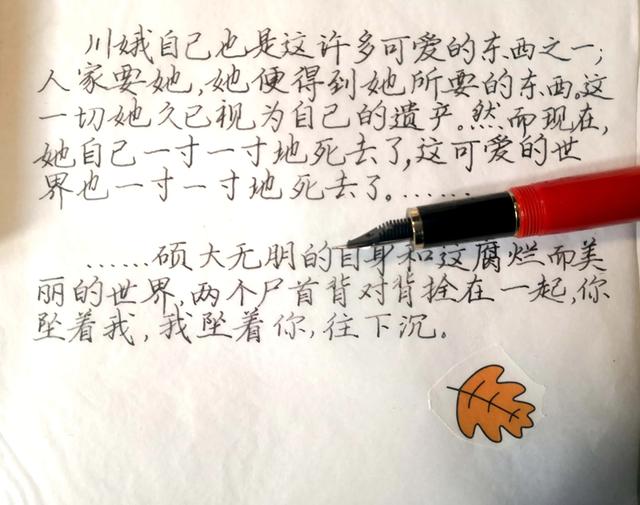 川娥自己也是这许多可爱的东西之一；
人家要她，她便得到她所要的东西。这
一切她久已视为自己的遗产。然而现在，
她自己一寸一寸地死去了，这可爱的世
界也一寸一寸地死去了。……
……硕大无朋的自身和这腐烂而美
丽的世界，两个尸首背对背拴在一起，你
坠着我，我坠着你，往下沉。